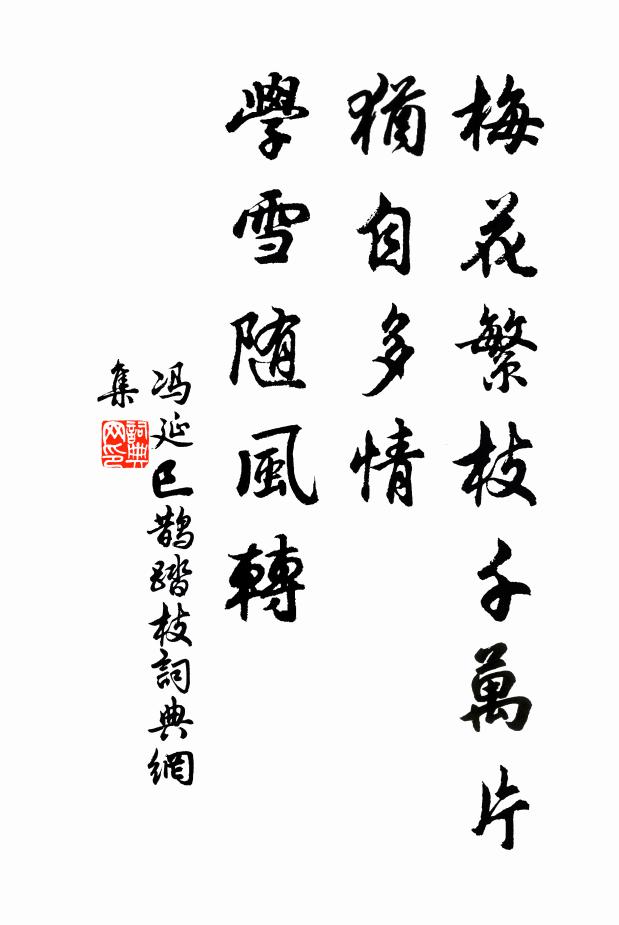 梅花繁枝千萬片
猶自多情
學雪随風轉
冯延巳鹊踏枝詞典網
集
詞典
网印